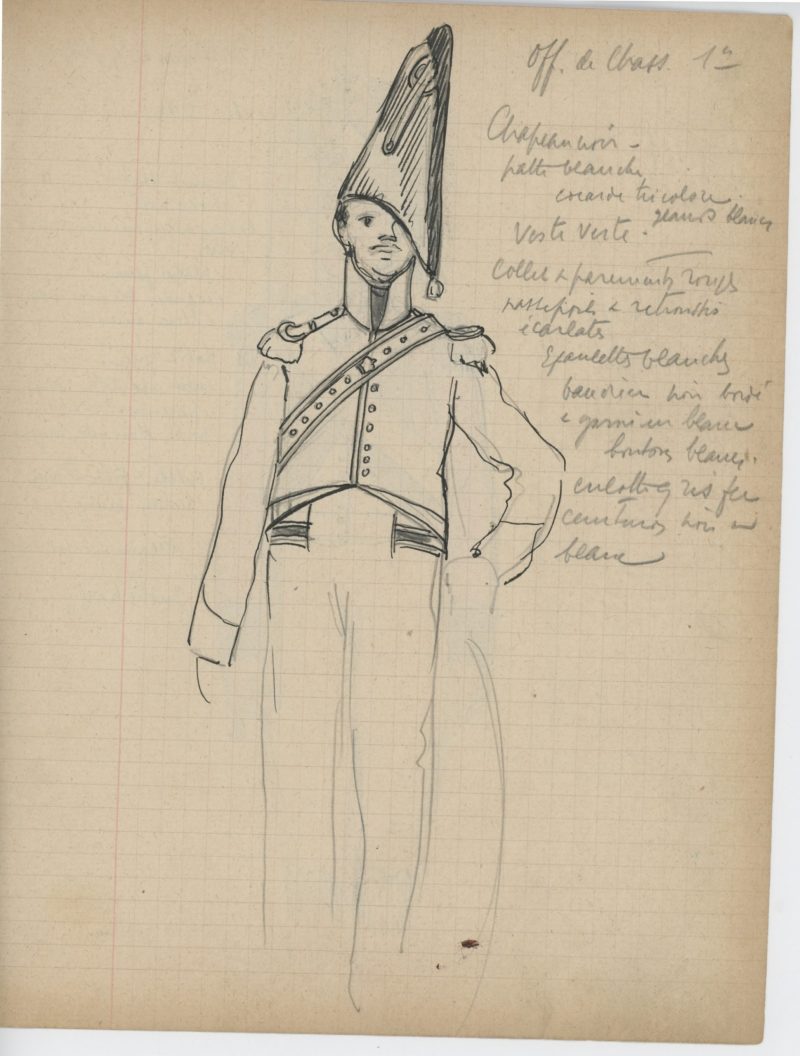 Off. de Chass. 1er
Chapeau noir -
patte blanche
cocarde tricolore.
glands blancs
Veste Verte.
Collet & parements rouges
passepoils & retroussis
écarlates
Epaulettes blanches
baudrier noir bordé
& garni en blanc
boutons blancs.
culotte gris fer
ceinturon noir
blanc